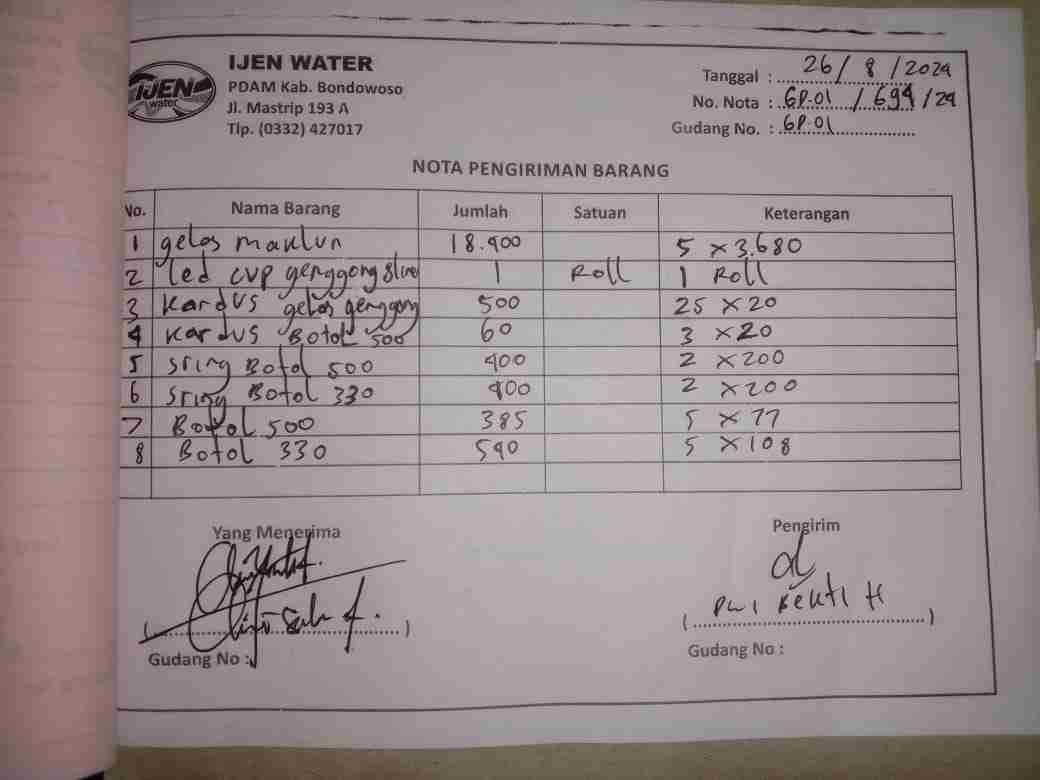 IJEN WATER
PDAM Kab. Bondowoso
Jl. Mastrip 193 A
Tlp. (0332) 427017
IJEN
water
Tanggal : 26 / 8 / 2024
No. Nota : GP.01 / 694 / 24
Gudang No. : GP.01
NOTA PENGIRIMAN BARANG
No. Nama Barang Jumlah Satuan Keterangan
1 gelas maklun 18.400 5 x 3.680
2 Led cup genggong 1 Roll 1 Roll
3 Kardus gelas genggong 500 25 x 20
4 Kardus Botol 500 60 3 x 20
5 sring Botol 500 400 2 x 200
6 sring Botol 330 400 2 x 200
7 Botol 500 385 5 x 77
8 Botol 330 540 5 x 108
Yang Menerima Pengirim
Dwi Bekti H
Gudang No : Gudang No :